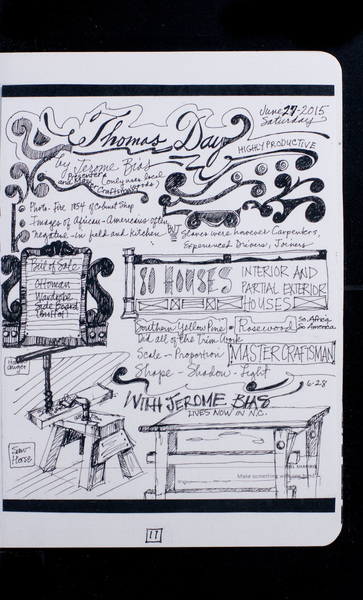 June 27-2015
Saturday
Thomas Day
HIGHLY PRODUCTIVE
by Jerome Bias
Presenter
and Craftsman
(only uses local
woods)
Photo-Fire 1984 of Cabinet Shop
Images of African-Americans often
negative-in field and kitchen
BUT
Slaves were knowses Carpenters,
Experienced Drivers, Joiners
Bill of Sale
Ottoman
Wardrobe
Side Board
80 HOUSES
INTERIOR AND
PARTIAL EXTERIOR
HOUSES
Southern Yellow Pine • Rosewood
So. Africa
So America
Did all of the Trim Work
Scale - Proportion
MASTER CRAFTSMAN
Shape - Shadow - Light
6-28
WITH JEROME BIAS
LIVES NOW IN N.C.
Saw-
Horse
Make something
11